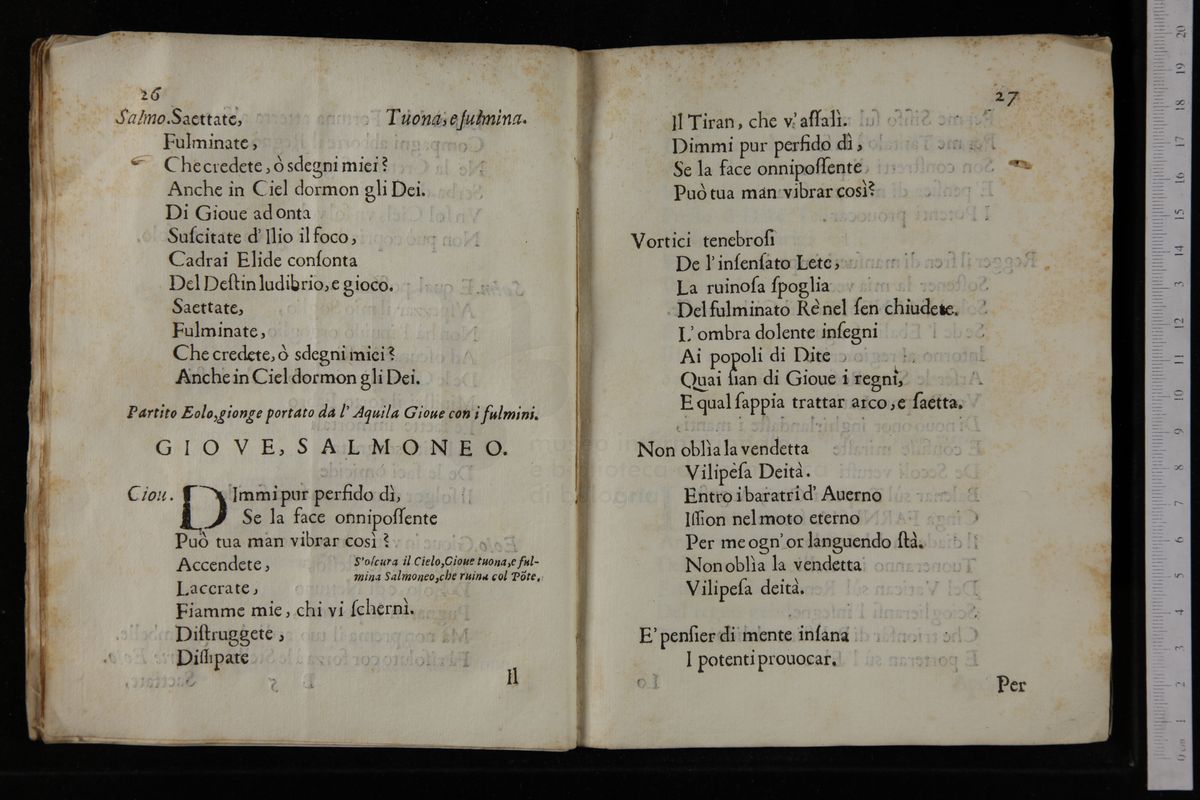 26
Salmo. Saettate, Tuona, e fulmina.
Fulminate,
Che credete, ò sdegni miei?
Anche in Ciel dormon gli Dei.
Di Gioue ad onta
Suſcitate d' Ilio il foco,
Cadrai Elide conſonta
Del Deſtin ludibrio, e gioco.
Saettate,
Fulminate,
Che credete, ò sdegni miei?
Anche in Ciel dormon gli Dei.
Partito Eolo, gionge portato da l' Aquila Gioue con i fulmini.
GIOVE, SALMONEO.
Giou. DImmi pur perfido dì,
Se la face onnipoſſente
Può tua man vibrar così?
Accendete, S'oſcura il Cielo, Gioue tuona, e ful-
Lacerate, mina Salmoneo, che ruina col Põte.
Fiamme mie, chi vi ſchernì.
Diſtruggete,
Diſſipate
Il
27
Il Tiran, che v' aſſalì.
Dimmi pur perfido dì,
Se la face onnipoſſente
Può tua man vibrar così?
Vortici tenebroſi
De l' inſenſato Lete,
La ruinoſa ſpoglia
Del fulminato Rè nel ſen chiudete.
L' ombra dolente inſegni
Ai popoli di Dite
Quai ſian di Gioue i regni,
E qual ſappia trattar arco, e ſaetta.
Non oblìa la vendetta
Vilipeſa Deità.
Entro i baratri d' Auerno
Iſſion nel moto eterno
Per me ogn' or languendo ſtà.
Non oblìa la vendetta
Vilipeſa deità.
E' penſier di mente inſana
I potenti prouocar.
Per